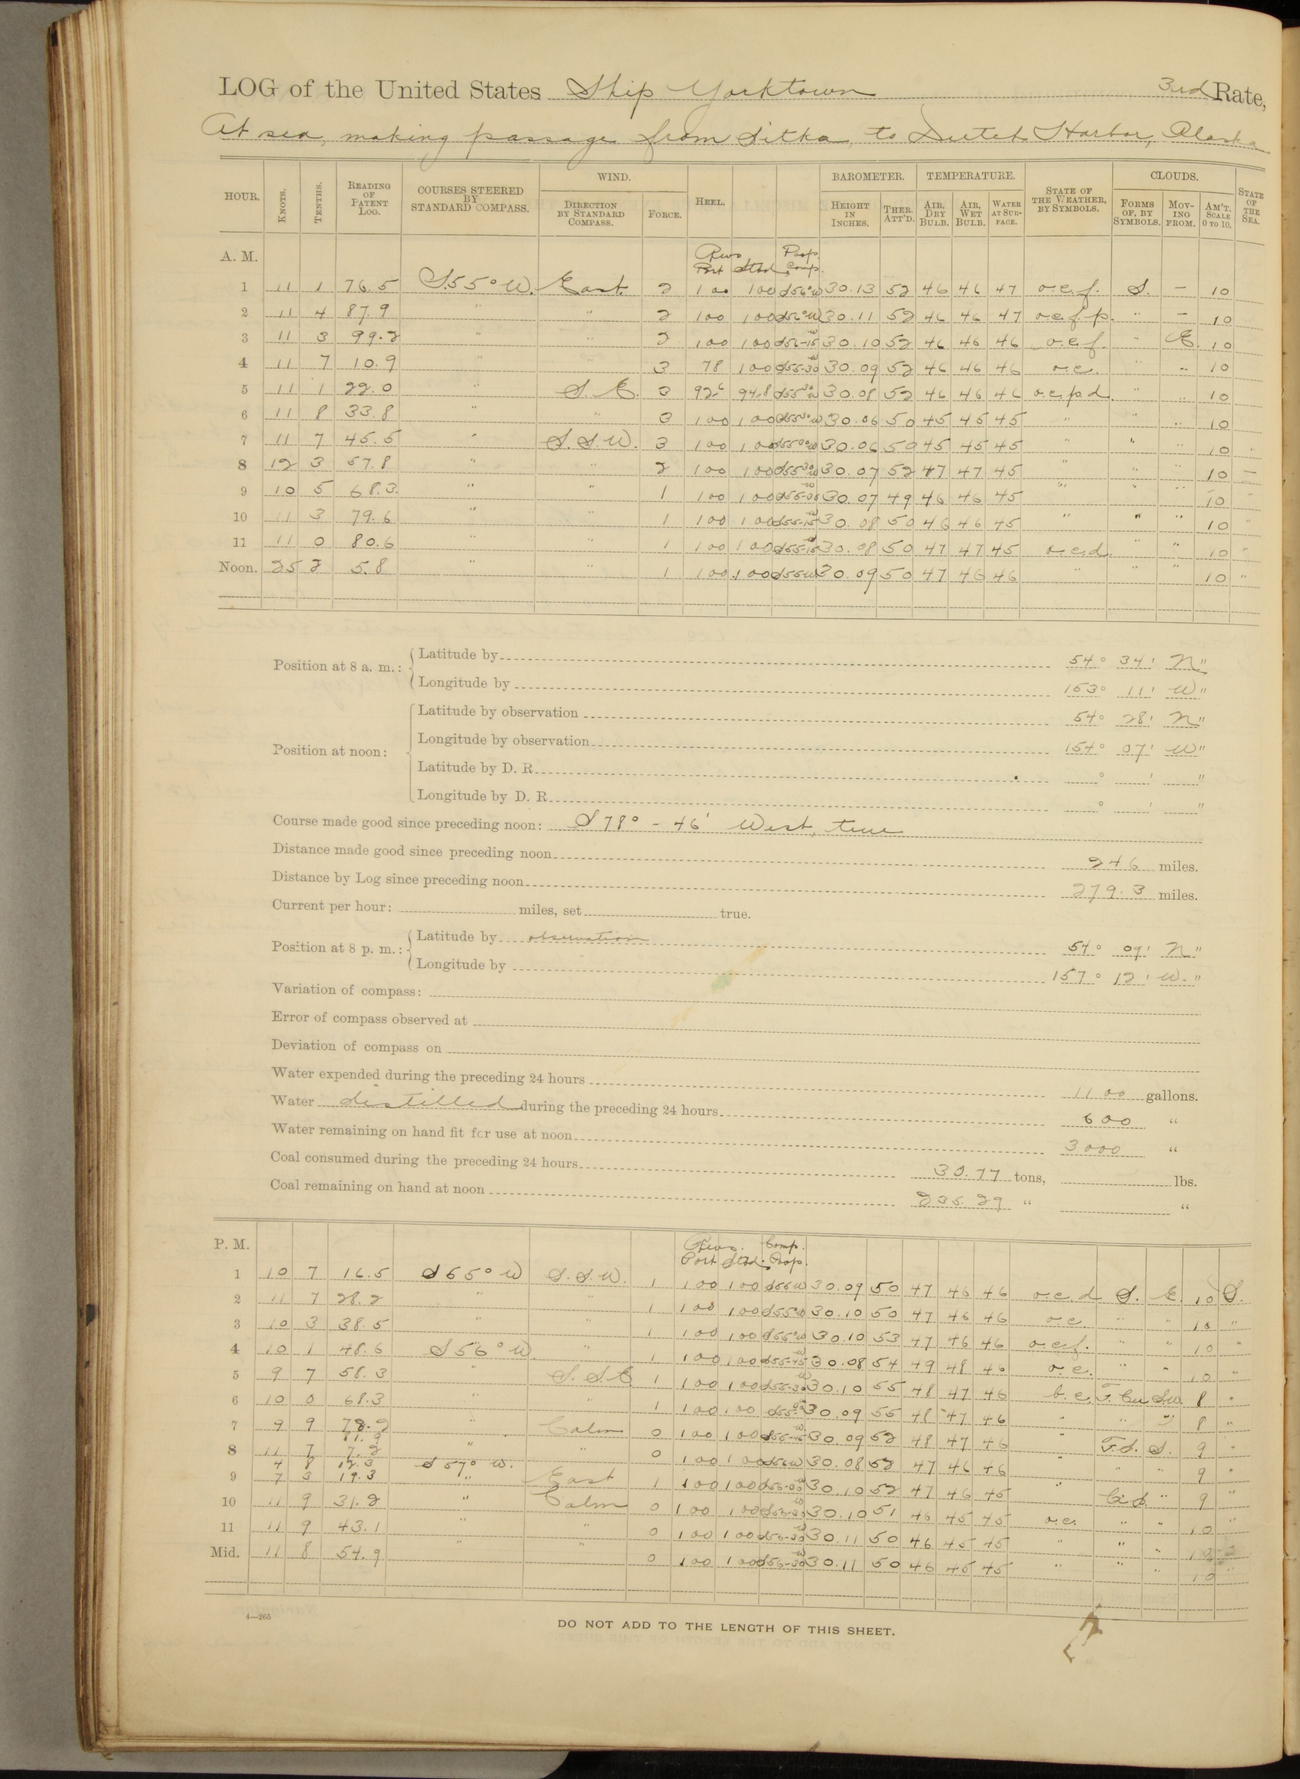 LOG of the United States Ship Yorktown 3rd Rate,
At sea, making passage from Sitka, to Dutch Harbor, Alaska
HOUR. KNOTS. TENTHS. READING OF PATENT LOG. COURSES STEERED BY STANDARD COMPASS. WIND. DIRECTION BY STANDARD COMPASS. FORCE. HEEL. BAROMETER. HEIGHT IN INCHES. THER. ATT'D. TEMPERATURE. AIR, DRY BULB. AIR, WET BULB. WATER AT SURFACE. STATE OF THE WEATHER, BY SYMBOLS. CLOUDS. FORMS OF, BY SYMBOLS. MOVING FROM. AM'T. SCALE 0 TO 10. STATE OF THE SEA.
A. M. Revs Port Stbd. Prop. Comp.
1 11 1 76.5 S55°W. East 2 100 100 S56°W 30.13 52 46 46 47 o.c.f. S. – 10
2 11 4 87.9 " " 2 100 100 S56°W 30.11 52 46 46 47 o.c.f.p. " – 10
3 11 3 99.2 " " 2 100 100 S56-15W 30.10 52 46 46 46 o.c.f. " E. 10
4 11 7 10.9 " " 3 78 100 S55-30W 30.09 52 46 46 46 o.c. " " 10
5 11 1 22.0 " S.E. 3 92.6 94.8 S55 30W 30.08 52 46 46 46 o.c.p.d. " 10
6 11 8 33.8 " " 3 100 100 30.06 50 45 45 45 " " " 10
7 11 7 45.5 " S.S.W. 3 100 100 30.06 50 45 45 45 " " " 10
8 12 3 57.8 " " 2 100 100 30.07 52 47 47 45 " " " 10
9 10 5 68.3 " " 1 100 100 30.07 49 46 46 45 " " " 10
10 11 3 79.6 " " 1 100 100 S55-15W 30.08 50 46 46 45 " " " 10
11 11 0 80.6 " " 1 100 100 S55-15W 30.08 50 47 47 45 o.c.d. " " 10
Noon. 25 2 5.8 " " 1 100 100 S55W 30.09 50 47 46 46 " " " 10 "
Position at 8 a. m.: Latitude by 54° 34' N"
Longitude by 153° 11' W"
Position at noon: Latitude by observation 54° 28' N"
Longitude by observation 154° 07' W"
Latitude by D. R. ° ' "
Longitude by D. R. ° ' "
Course made good since preceding noon: S 78° - 46' West, true
Distance made good since preceding noon 246 miles.
Distance by Log since preceding noon 279.3 miles.
Current per hour: miles, set true.
Position at 8 p. m.: Latitude by observation 54° 09' N"
Longitude by 157° 12' W."
Variation of compass:
Error of compass observed at
Deviation of compass on
Water expended during the preceding 24 hours 1100 gallons.
Water distilled during the preceding 24 hours 600 "
Water remaining on hand fit for use at noon 3000 "
Coal consumed during the preceding 24 hours 30.77 tons, lbs.
Coal remaining on hand at noon 235.29 " "
P. M. Revs. Port Stbd. Comp. Prop.
1 10 7 16.5 S55°W S.S.W. 1 100 100 S55W 30.09 50 47 46 46 o.c.d S. E. 10 S.
2 11 7 28.2 " " 1 100 100 S55°W 30.10 50 47 46 46 o.c. " " 10 "
3 10 3 38.5 " " 1 100 100 S55°W 30.10 53 47 46 46 o.c.f. " " 10 "
4 10 1 48.6 S56°W " 1 100 100 S55-45W 30.08 54 49 48 46 o.c. " " 10 "
5 9 7 58.3 " S.SE 1 100 100 S55-30W 30.10 55 48 47 46 b.c. 8 "
6 10 0 68.3 " " 1 100 100 30.09 55 48 47 46 " " " 8 "
7 9 9 78.2 " Calm 0 100 100 30.09 52 48 47 46 " S. 9 "
8 11 7 7.2 " " 0 100 100 S56W 30.08 52 47 46 46 " " " 9 "
4 8 12.3 S57° W.
9 7 3 19.3 " East 1 100 100 30.10 52 47 46 45 " " 9 "
10 11 9 31.2 " Calm 0 100 100 30.10 51 46 45 45 o.c. " " 10
11 11 9 43.1 " " 0 100 100 S56-30W 30.11 50 46 45 45 " " " 10
Mid. 11 8 54.9 " " 0 100 100 S56-30W 30.11 50 46 45 45 " " " 10 "
4—265
DO NOT ADD TO THE LENGTH OF THIS SHEET.